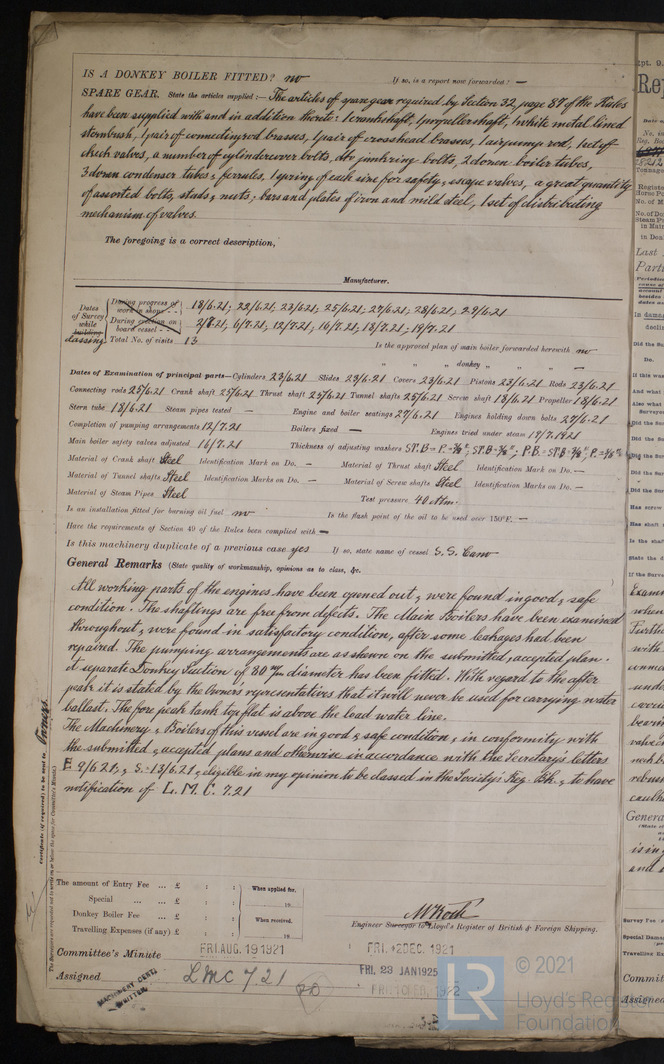 IS A DONKEY BOILER FITTED? no If so, is a report now forwarded? —
SPARE GEAR. State the articles supplied:— The articles of spare gear required by Section 32, page 87 of the Rules
have been supplied with and in addition thereto: 1 crankshaft, 1 propeller shaft, 1 white metal lined
sternbush, 1 pair of connecting rod brasses, 1 pair of crosshead brasses, 1 airpump rod, 1 set of
check valves, a number of cylindercover bolts, junkring bolts, 2 dozen boiler tubes,
3 dozen condenser tubes & ferrules, 1 spring of each size for safety & escape valves, a great quantity
of assorted bolts, studs, nuts, bars and plates of iron and mild steel, 1 set of distributing
mechanism of valves.
The foregoing is a correct description,
Manufacturer.
Dates of Survey while building classing
During progress of work in shops - - 18/6.21; 22/6.21; 23/6.21; 25/6.21; 27/6.21; 28/6.21; 29/6.21
During erection on board vessel - - - 2/7.21; 6/7.21; 12/7.21; 16/7.21; 18/7.21; 19/7.21
Total No. of visits 13
Is the approved plan of main boiler forwarded herewith no
" " " donkey " " —
Dates of Examination of principal parts—Cylinders 23/6.21 Slides 23/6.21 Covers 23/6.21 Pistons 23/6.21 Rods 23/6.21
Connecting rods 25/6.21 Crank shaft 25/6.21 Thrust shaft 25/6.21 Tunnel shafts 25/6.21 Screw shaft 18/6.21 Propeller 18/6.21
Stern tube 18/6.21 Steam pipes tested — Engine and boiler seatings 27/6.21 Engines holding down bolts 27/6.21
Completion of pumping arrangements 12/7.21 Boilers fixed — Engines tried under steam 19/7.1921
Main boiler safety valves adjusted 16/7.21 Thickness of adjusting washers
Material of Crank shaft Steel Identification Mark on Do. — Material of Thrust shaft Steel Identification Mark on Do. —
Material of Tunnel shafts Steel Identification Marks on Do. — Material of Screw shafts Steel Identification Marks on Do. —
Material of Steam Pipes Steel Test pressure 40 Atm.
Is an installation fitted for burning oil fuel no Is the flash point of the oil to be used over 150°F. —
Have the requirements of Section 49 of the Rules been complied with —
Is this machinery duplicate of a previous case yes If so, state name of vessel S.S.
General Remarks (State quality of workmanship, opinions as to class, &c.
All working parts of the engines have been opened out & were found in good & safe
condition. The shaftings are free from defects. The Main Boilers have been examined
throughout & were found in satisfactory condition, after some leakages had been
repaired. The pumping arrangements are as shewn on the submitted & accepted plan.
A separate Donkey Suction of 80 m/m diameter has been fitted. With regard to the after
peak it is stated by the Owners representatives that it will never be used for carrying water
ballast. The fore peak tank top flat is above the load water line.
The Machinery & Boilers of this vessel are in good & safe condition, in conformity with
the submitted & accepted plans and otherwise in accordance with the Secretary's letters
E 9/6 21, & S. 13/6.21 & eligible in my opinion to be classed in the Society's Reg. Bk. & to have
notification of L.M.C. 7.21
Certificate (if required) to be sent to Owners.
The amount of Entry Fee ... £ : :
Special ... ... £ : :
Donkey Boiler Fee ... £ : :
Travelling Expenses (if any) £ : :
When applied for,
19
When received,
19
Engineer Surveyor to Lloyd's Register of British & Foreign Shipping.
Committee's Minute FRI. AUG. 19 1921 FRI. 2 DEC. 1921
Assigned LMC 7.21 FRI. 23 JAN 1925
MACHINERY CERTI
WRITTEN.
LR
© 2021
Lloyd's Register
Foundation